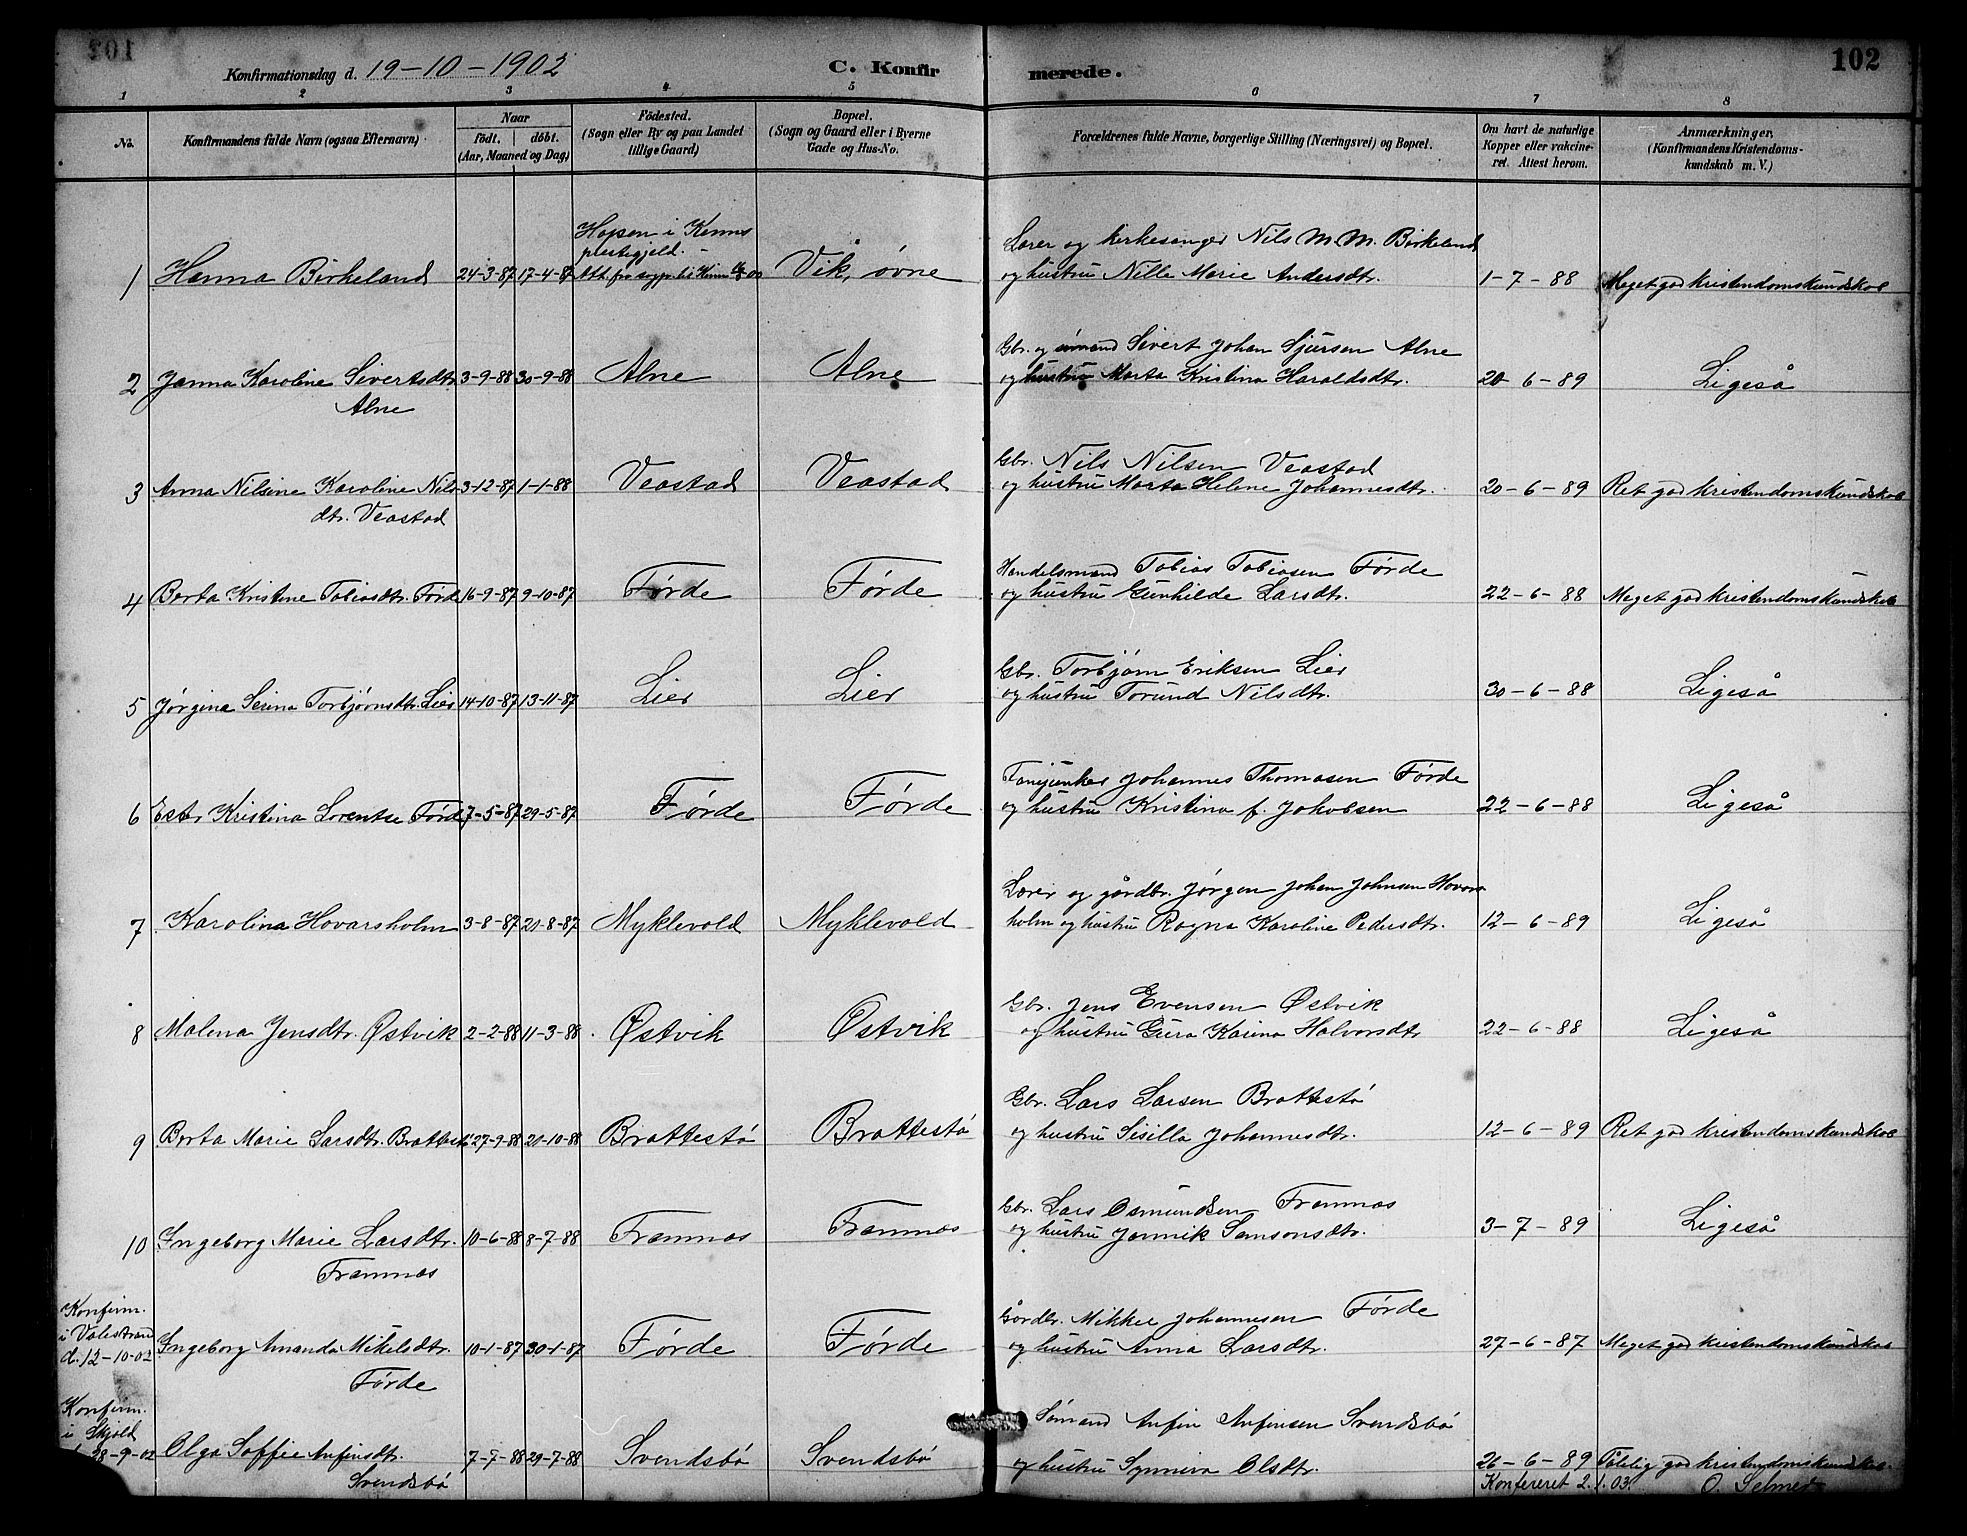 102
Konfirmationsdag d. 19-10-1902
C. Konfirmerede.
102
1 2 3 4 5 6 7 8
No.
Konfirmandens fulde Navn (ogsaa Efternavn)
Naar
født, døbt.
(Aar, Maaned og Dag)
Fødested.
(Sogn eller By og paa Landet
tillige Gaard)
Bopæl.
(Sogn og Gaard eller i Byerne
Gade og Hus-No.
Forældrenes fulde Navne, borgerlige Stilling (Næringsvei) og Bopæl.
Om havt de naturlige
Kopper eller vakcine-
ret. Attest herom.
Anmærkninger.
(Konfirmandens Kristendoms-
kundskab m. V.)
Hopen i Kinns
prestegjeld.
1 Hanna Birkeland 24-3-87 17-4-87 Vik, øvre
Lærer og kirkesanger Nils M. M. Birkeland
og hustru Nille Marie Andersdtr. 1-7-88 Meget god kristendomskundskab
2 Janna Karoline Sivertsdtr. 3-9-88 30-9-88 Alne Alne
Alne
Gbr. og Sivert Johan Sjursen Alne
og hustru Marta Kristina Haraldsdtr. 20-6-89 Ligeså
3 Anna Nilsine Karoline Nils- 3-12-87 1-1-88 Veastad Veastad
dtr. Veastad
Gbr. Nils Nilsen Veastad
og hustru Marta Helene Johannesdtr. 20-6-89 Ret god kristendomskundskab
4 Berta Kristine Tobiasdtr. Førde 16-9-87 9-10-87 Førde Førde
Handelsmand Tobias Tobiasen Førde
og hustru Gunhilde Larsdtr. 22-6-88 Meget god kristendomskundskab
5 Jørgina Serina Torbjørnsdtr. Lier 14-10-87 13-11-87 Lier Lier
Gbr. Torbjørn Eriksen Lier
og hustru Torund Nilsdtr. 30-6-88 Ligeså
6 Ester Kristina Lorentse Førde 7-5-87 29-5-87 Førde Førde
Fanejunker Johannes Thomasen Førde
og hustru Kristina f. Jakobsen 22-6-88 Ligeså
7 Karolina Hovarsholm 3-8-87 21-8-87 Myklevold Myklevold
Lærer og gårdbr. Jørgen Johan Johnsen Hovars-
holm og hustru Ragna Karoline Pedersdtr. 12-6-89 Ligeså
8 Malena Jensdtr. Østvik 2-2-88 11-3-88 Østvik Østvik
Gbr. Jens Evensen Østvik
og hustru Gura Karina Halvorsdtr 22-6-88 Ligeså
9 Berta Marie Larsdtr. Brattestø 27-9-88 21-10-88 Brattestø Brattestø
Gbr. Lars Larsen Brattestø
og hustru Sisilla Johannesdtr. 12-6-89 Ret god kristendomskundskab
10 Ingeborg Marie Larsdtr. 10-6-88 8-7-88 Framnas Framnas
Framnas
Gbr. Lars Osmundsen Framnas
og hustru Jannik Samsonsdtr. 3-7-89 Ligeså
Konfirm.
i Valestrand
d. 12-10-02
Ingeborg Amanda Mikelsdtr. 10-1-87 30-1-87 Førde Førde
Førde
Gårdbr. Mikkel Johannesen Førde
og hustru Anna Larsdtr. 27-6-87 Meget god kristendomskundskab
Konfirm.
i Skjold
28-9-02
Olga Soffie Anfinsdtr. 7-7-88 29-7-88 Svendsbø Svendsbø
Svendsbø
Sømand Anfin Anfinsen Svendsbø
og hustru Synneva Olsdtr. 26-6-89 Tålelig god kristendomskundskab.
Konfereret 2.1.03. O. Selmer